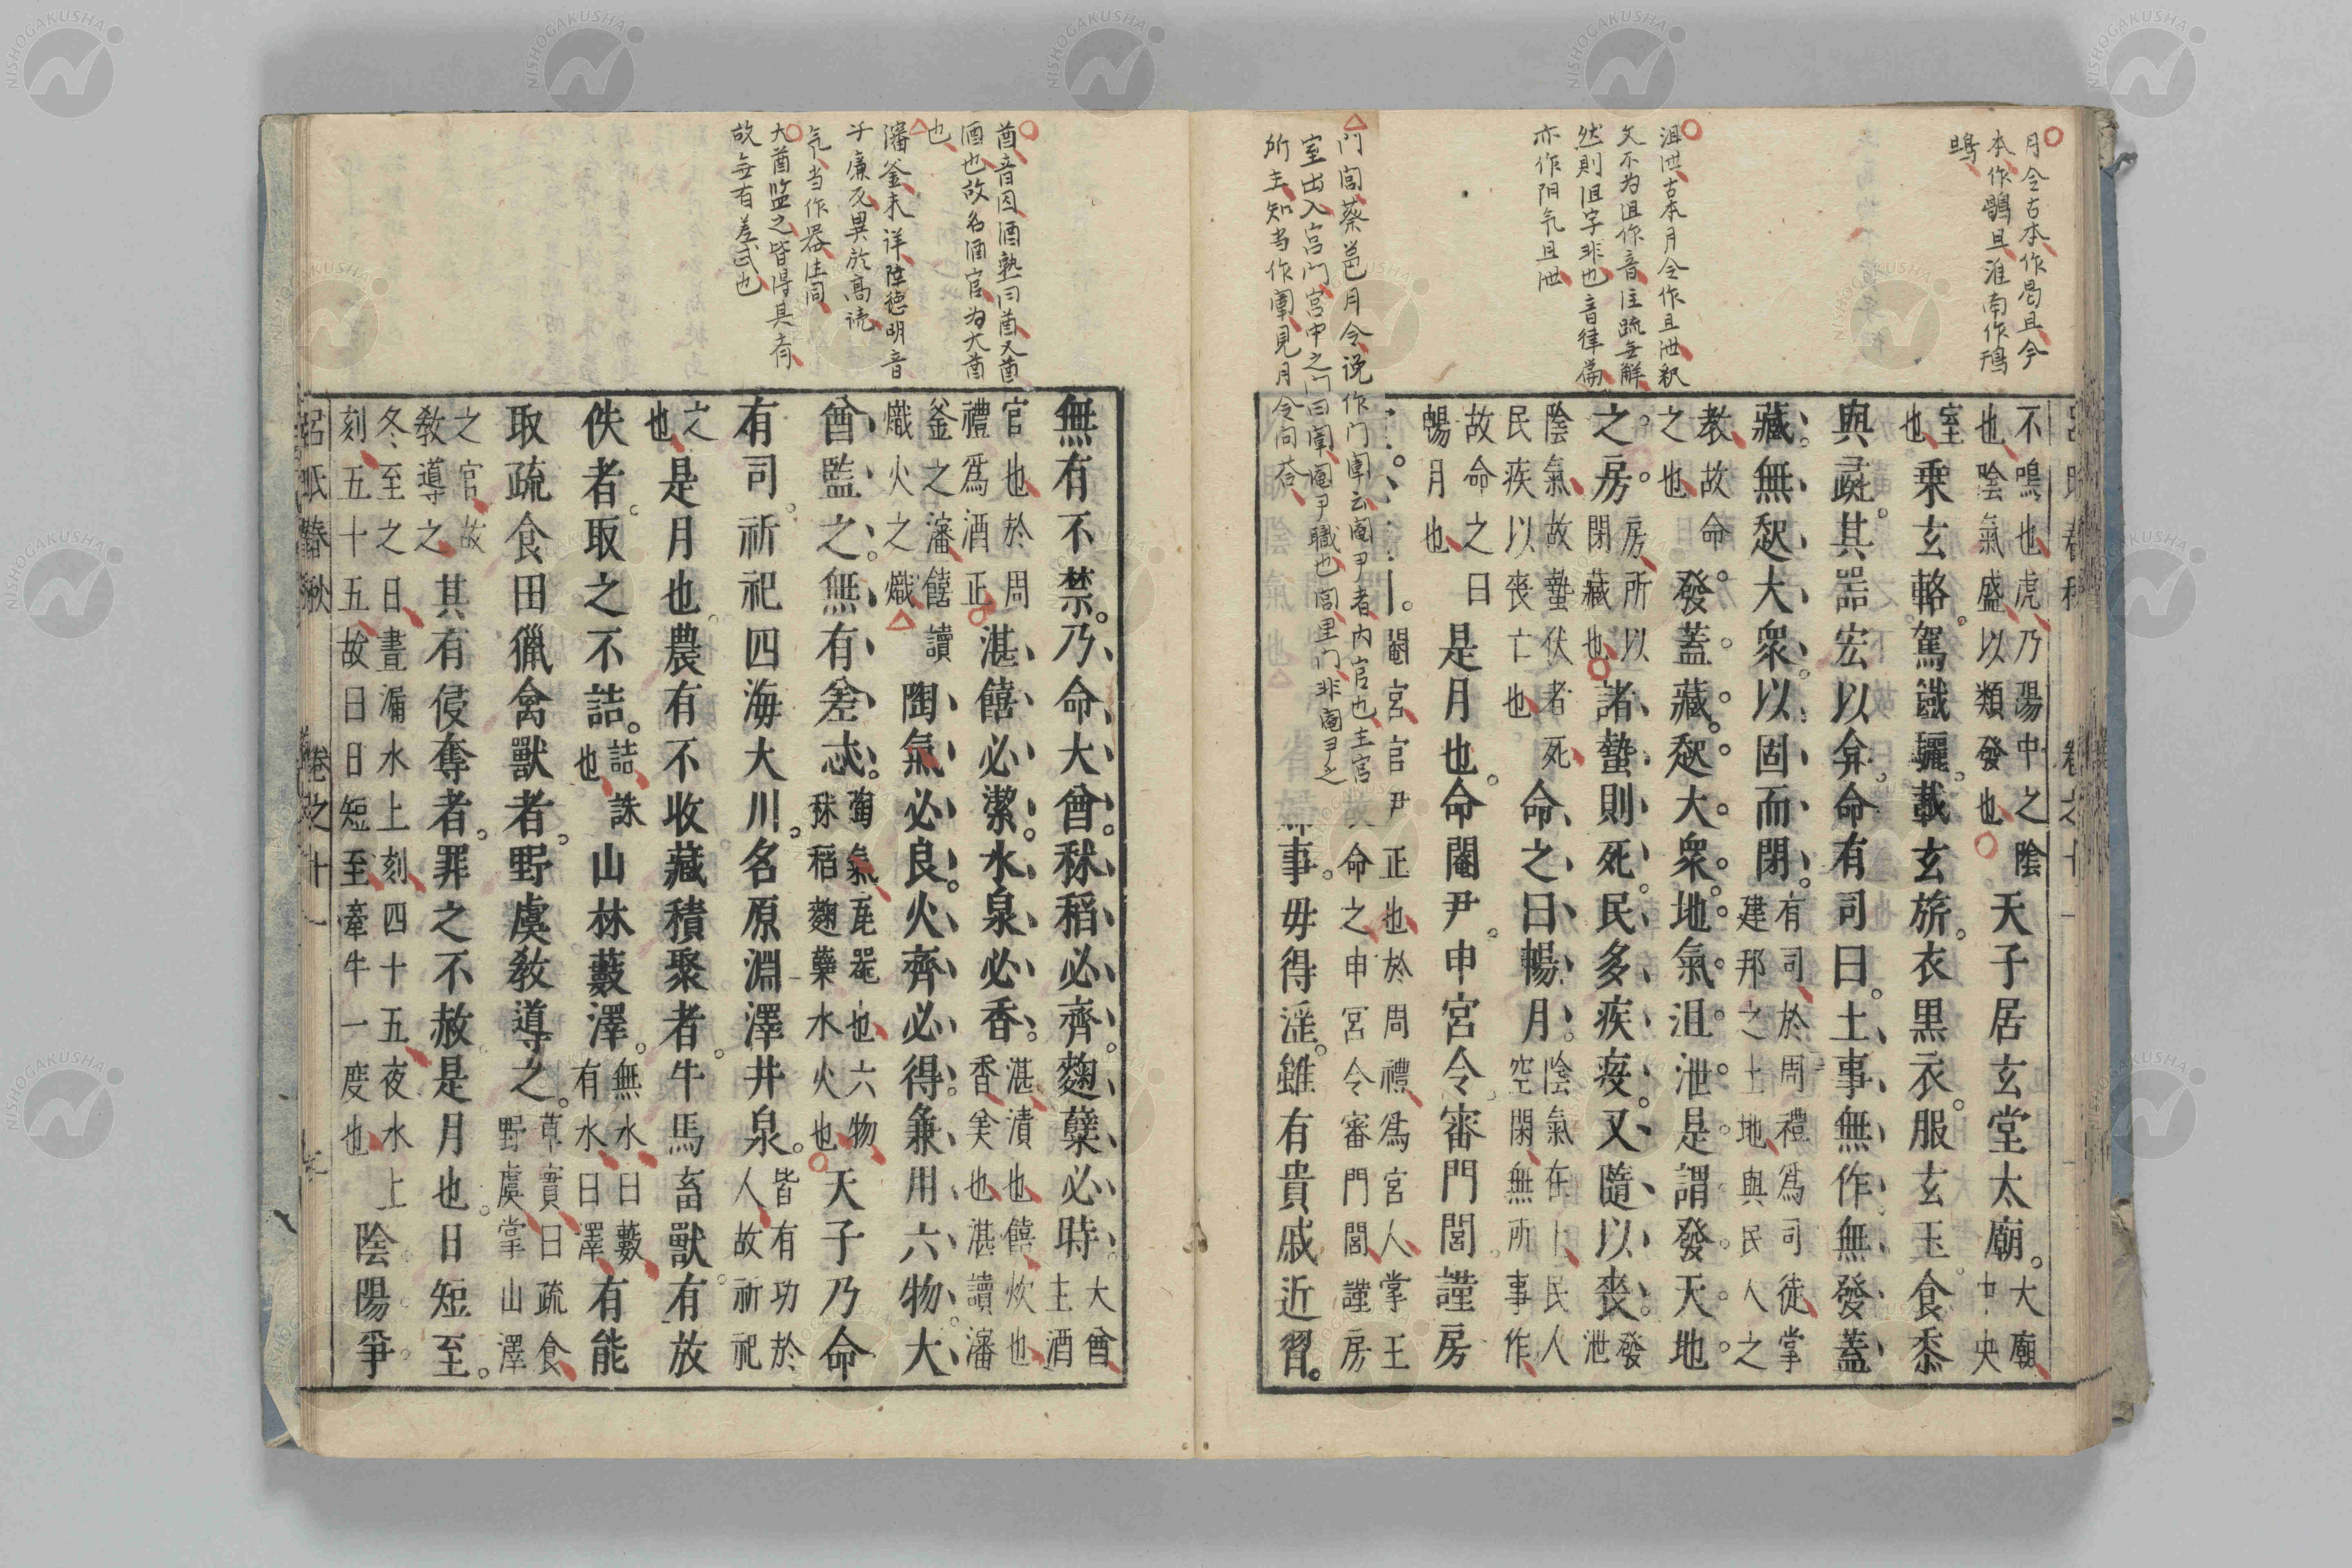 月令古本作曷且今
本作鶡且淮南作鳱
鴠
沮泄古本月令作且泄釈
文不为沮作音注疏無解
然則沮字非也音律篇
亦作阳气且泄
門閭蔡邕月令说作门闈云阍尹者内官也主宫
室出入宫门宫中之门曰闈阍尹職也闾里门非阍尹之
所主知当作闈見月令问荅
不鳴也虎乃陽中之陰
也陰氣盛以類發也
天子居玄堂太廟
大廟
中央
室
也
乘玄輅駕鐵驪載玄旂衣黑衣服玄玉食黍
與彘其噐宏以弇命有司曰土事無作無發蓋
藏無起大衆以固而閉
有司於周禮爲司徒掌
建邦之土地與民人之
教故命
之也
發蓋藏起大衆地氣沮泄是謂發天地
之房
房所以
閉藏也
諸蟄則死民多疾疫又隨以喪
發
泄
陰氣故蟄伏者死
民疾以喪亡也
命之曰暢月
陰氣在上民人
空閑無所事作
故命之曰
暢月也
是月也命閹尹申宮令審門閭謹房
閹宮官尹正也於周禮爲宮人掌王
故命之申宮令審門閭謹房
事毋得淫雖有貴戚近習
酋音囚酒熟曰酋又酋
酒也故名酒官为大酋
也
瀋釜未详陸德明音
子廉反異於高读
气当作器注同
大酋监之皆得其齐
故無有差忒也
無有不禁乃命大酋秫稻必齊麴糵必時
大酋
主酒
官也於周
禮爲酒正
湛饎必潔水泉必香
湛漬也饎炊也
香美也湛讀瀋
釜之瀋饎讀
熾火之熾
陶氣必良火齊必得兼用六物大
酋監之無有差忒
陶氣瓦噐也六物
秫稻麴糵水火也
天子乃命
有司祈祀四海大川名原淵澤井泉
皆有功於
人故祈祀
之
也
是月也農有不收藏積聚者牛馬畜獸有放
佚者取之不詰
詰誅
也
山林藪澤
無水曰藪
有水曰澤
有能
取疏食田獵禽獸者野虞教導之
草實曰疏食
野虞掌山澤
之官故
敎導之
其有侵奪者罪之不赦是月也日短至
冬至之日晝漏水上刻四十五夜水上
刻五十五故曰日短至牽牛一度也
陰陽爭
呂氏春秋
卷之十一